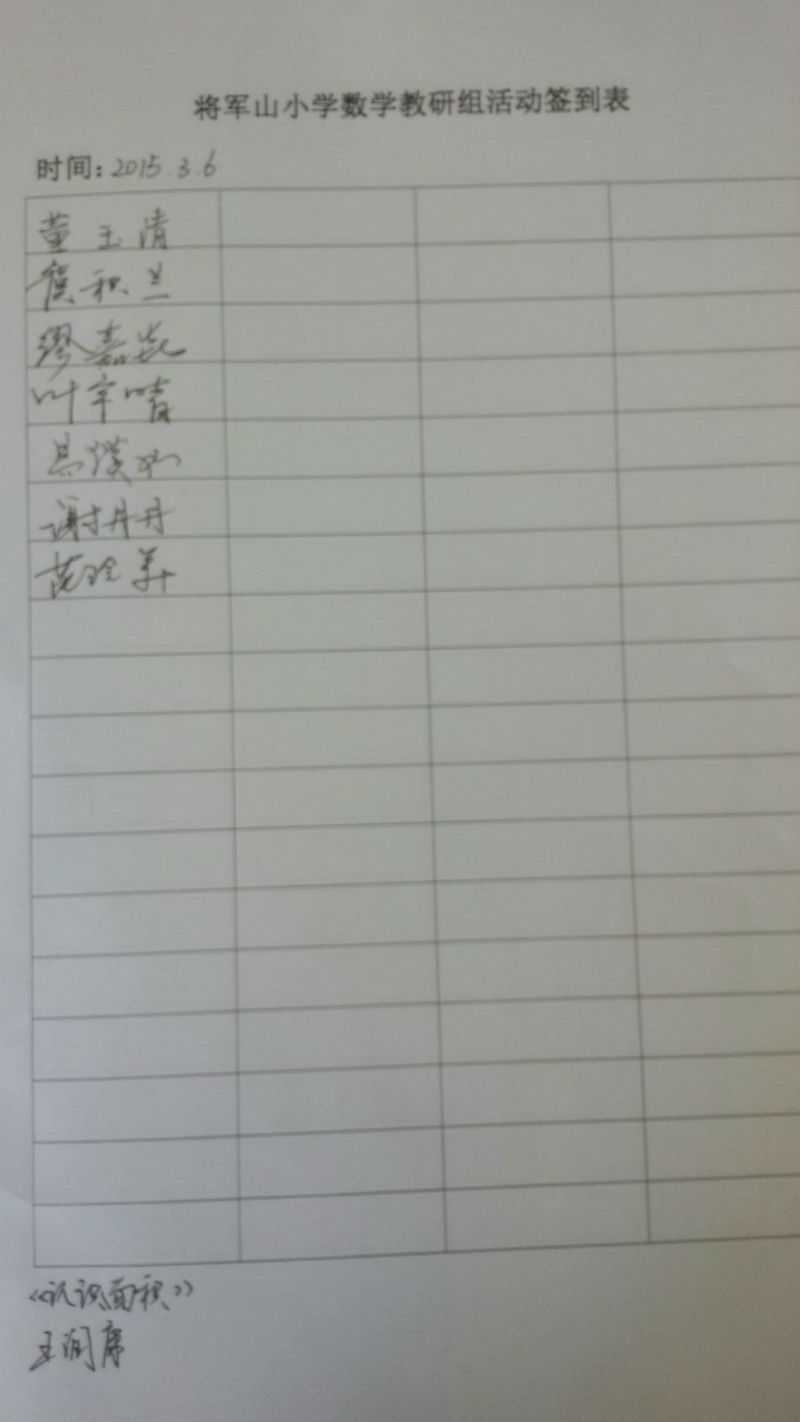 将军山小学数学教研组活动签到表
时间：2015.3.6
董玉清
积兰
缪嘉
叶宇晴
谢丹丹
范玲
《认识面积》
王润